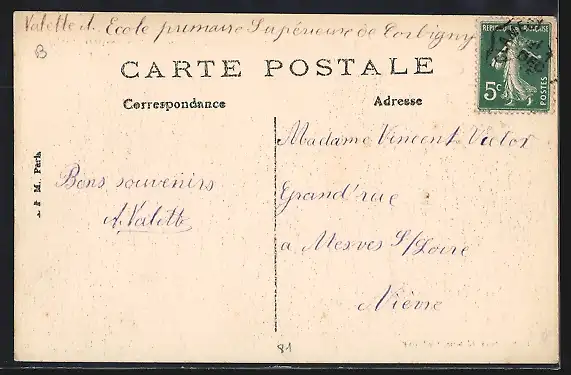 Valette A. Ecole primaire Supérieure de Corbigny
B
RÉPUBLIQUE FRANÇAISE
5c
POSTES
CARTE POSTALE
Correspondance
Adresse
Madame Vincent Victor
Bons souvenirs
A. Valette
Grand'rue
a Mesves S/Loire
Nièvre
M. Paris
81